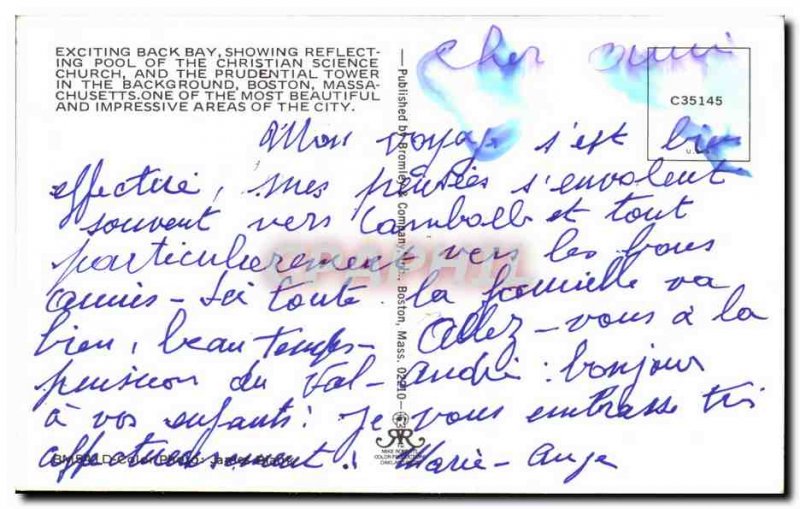 EXCITING BACK BAY, SHOWING REFLECT-
ING POOL OF THE CHRISTIAN SCIENCE
CHURCH, AND THE PRUDENTIAL TOWER
IN THE BACKGROUND, BOSTON, MASSA-
CHUSETTS. ONE OF THE MOST BEAUTIFUL
AND IMPRESSIVE AREAS OF THE CITY.
Cher
C35145
Mon voyage s'est bien
effectué, mes pensées s'envolent
souvent vers et tout
particulièrement vers les bons
amis - Ici toute la famille va
bien, beau temps - Allez-vous à la
pension du Val-André : bonjour
à vos enfants! Je vous embrasse très
affectueusement. Marie-Ange
Published by Bromley & Company, Boston, Mass. 02210
Color Photo:
MIKE ROBERTS